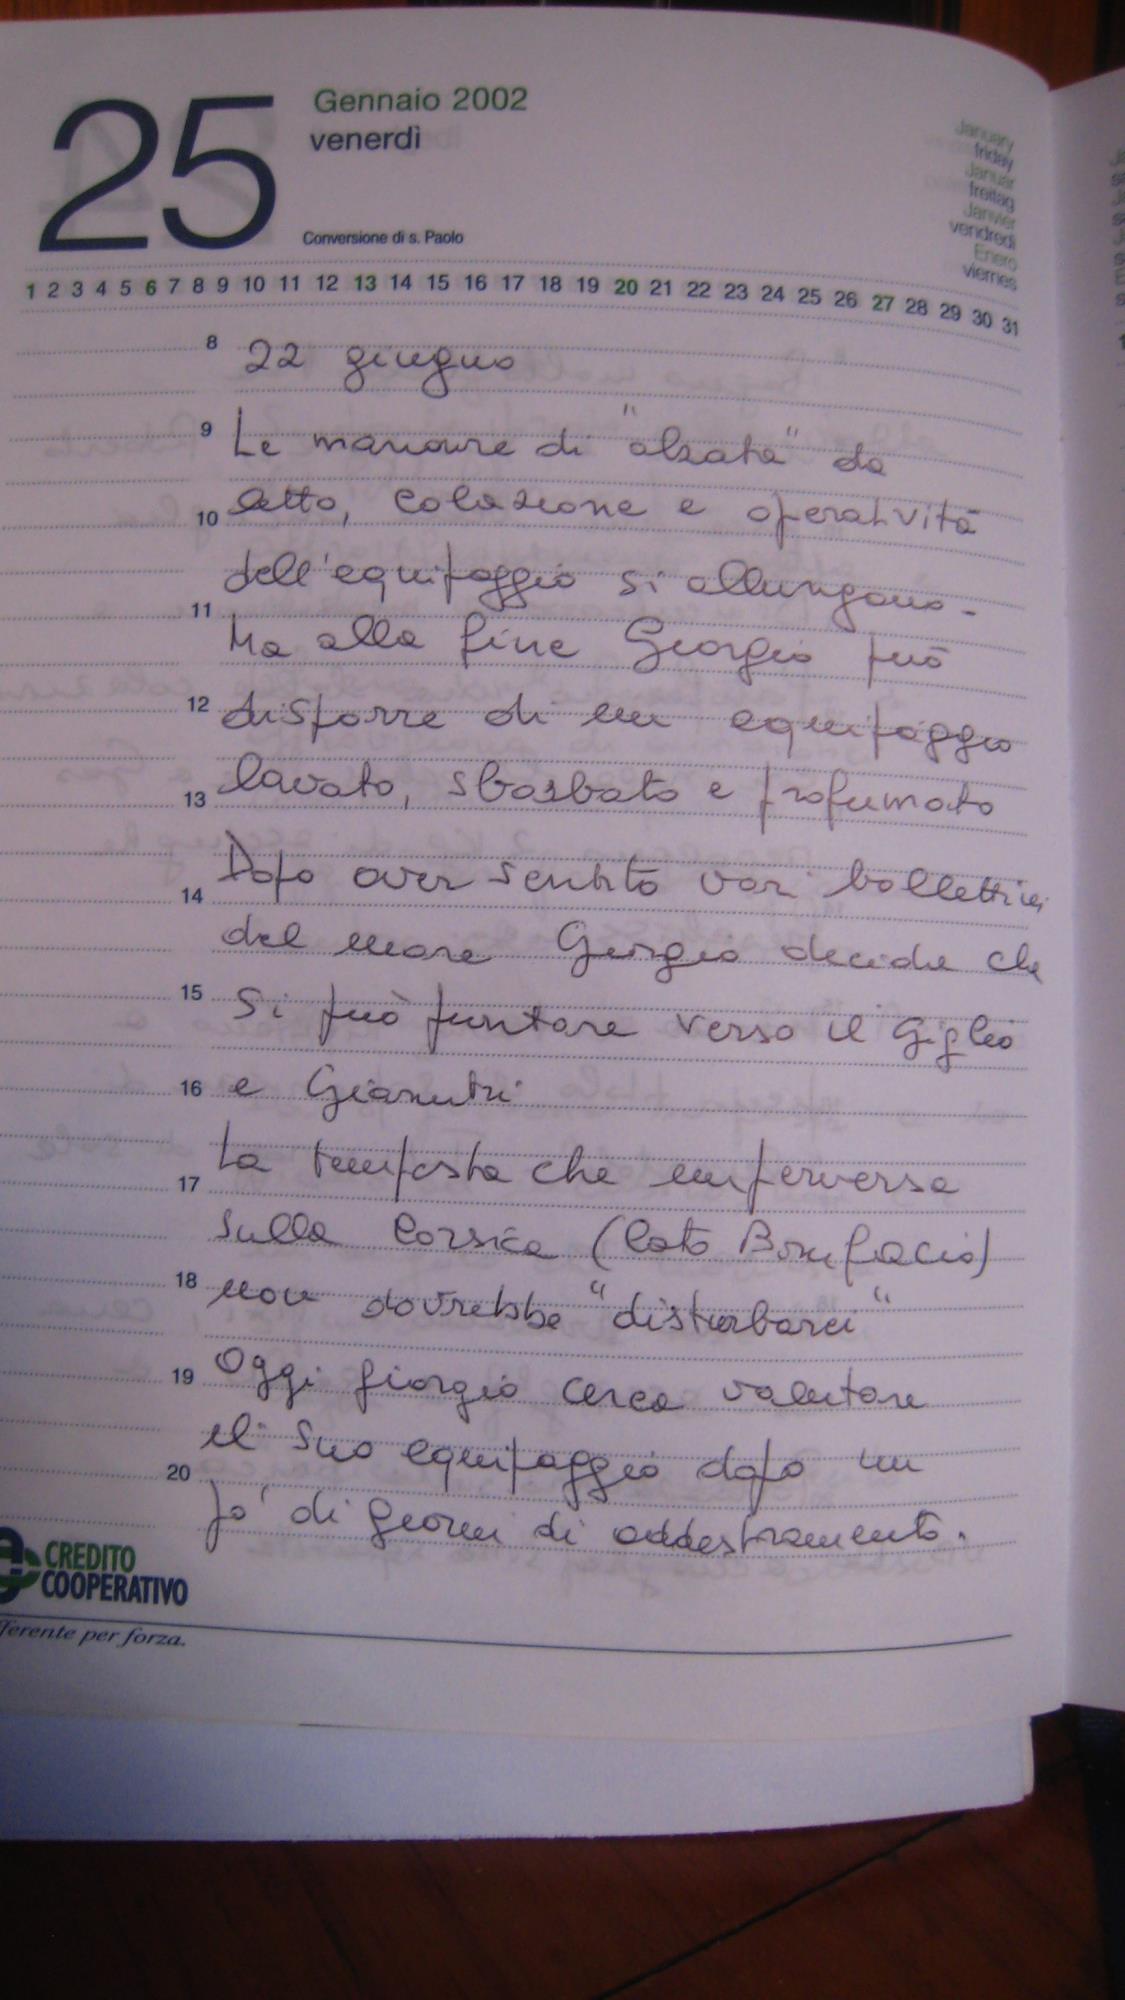 25
Gennaio 2002
venerdì
Conversione di s. Paolo
January
friday
Januar
freitag
Janvier
vendredi
Enero
viernes
1 2 3 4 5 6 7 8 9 10 11 12 13 14 15 16 17 18 19 20 21 22 23 24 25 26 27 28 29 30 31
8 22 giugno
9 Le manovre di "alzata" da
10 letto, colazione e operatività
dell'equipaggio si allungano.
11 Ma alla fine Giorgio può
12 disporre di un equipaggio
13 lavato, sbarbato e profumato
14 Dopo aver sentito vari bollettini
del mare Giorgio decide che
15 si può puntare verso il Giglio
16 e Giannutri
17 La tempesta che imperversa
sulla Corsica (lato Bonifacio)
18 non dovrebbe "disturbarci"
19 Oggi Giorgio cerca valutare
il suo equipaggio dopo un
20 po' di giorni di addestramento.
CREDITO
COOPERATIVO
fferente per forza.